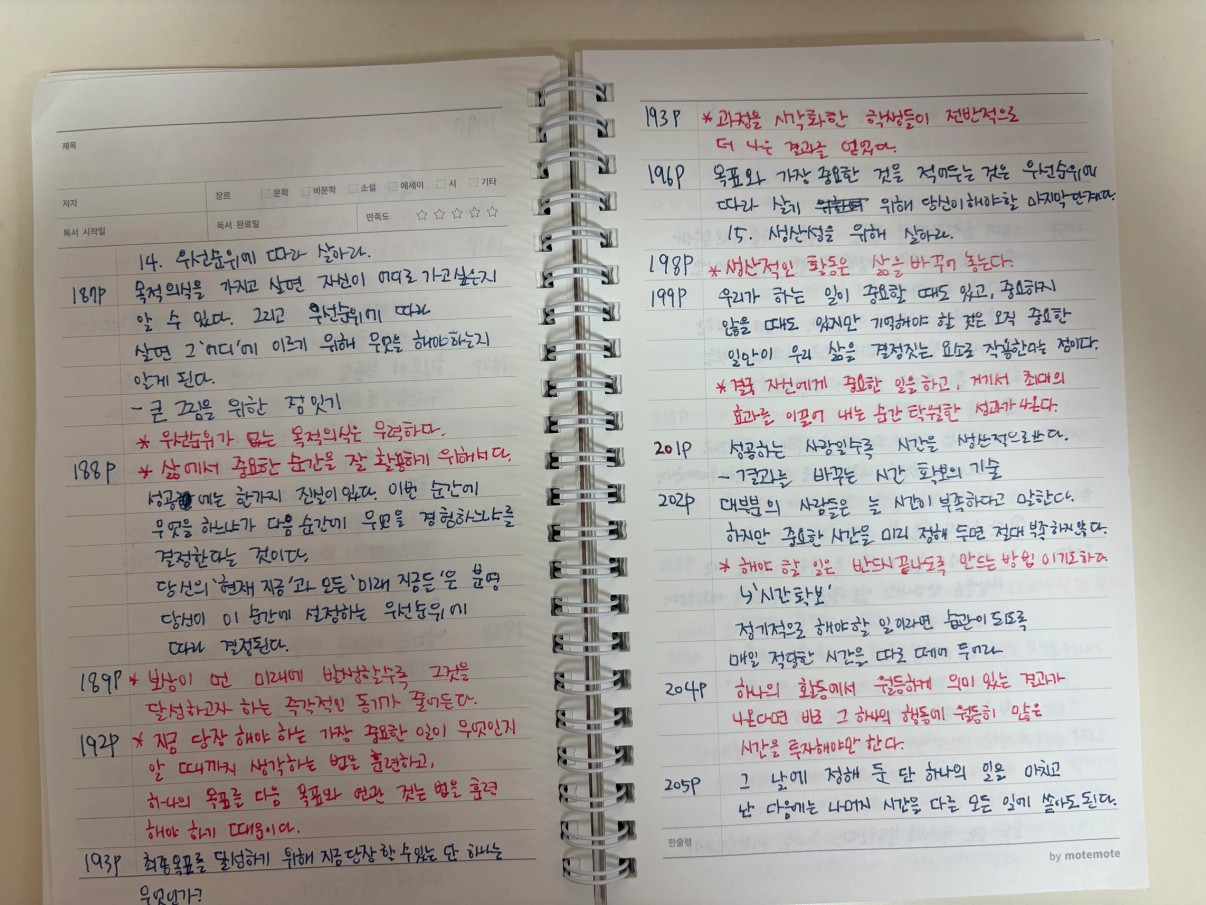 제목
저자
장르 문학 비문학 소설 에세이 시 기타
독서 시작일 독서 완료일 만족도
14. 우선순위에 따라 살아라.
187p 목적의식을 가지고 살면 자신이 어디로 가고싶은지
알 수 있다. 그리고 우선순위에 따라
살면 그 '어디'에 이르기 위해 무엇을 해야하는지
알게 된다.
- 큰 그림을 위한 점 잇기
* 우선순위가 없는 목적의식은 무력하다.
188p * 삶에서 중요한 순간을 잘 활용하기 위해서다.
성공에는 한가지 진실이 있다. 이번 순간에
무엇을 하느냐가 다음 순간에 무엇을 경험하느냐를
결정한다는 것이다.
당신의 '현재 지금'과 모든 '미래 지금들'은 분명
당신이 이 순간에 설정하는 우선순위에
따라 결정된다.
189p * 보상이 먼 미래에 발생할수록 그것을
달성하고자 하는 즉각적인 동기가 줄어든다.
192p * 지금 당장 해야 하는 가장 중요한 일이 무엇인지
알 때까지 생각하는 법을 훈련하고,
하나의 목표를 다음 목표와 연관 짓는 법을 훈련
해야 하기 때문이다.
193p 최종목표를 달성하기 위해 지금당장 할 수 있는 단 하나는
무엇인가?
193p * 과정을 시각화한 학생들이 전반적으로
더 나은 결과를 얻었다.
196p 목표와 가장 중요한 것을 적어두는 것은 우선순위에
따라 살기 위해 당신이 해야할 마지막 단계다.
15. 생산성을 위해 살아라.
198p * 생산적인 활동은 삶을 바꾸어 놓는다.
199p 우리가 하는 일이 중요할 때도 있고, 중요하지
않을 때도 있지만 기억해야 할 것은 오직 중요한
일만이 우리 삶을 결정짓는 요소로 작용한다는 점이다.
* 결국 자신에게 중요한 일을 하고, 거기서 최대의
효과를 이끌어 내는 순간 탁월한 성과가 나온다.
201p 성공하는 사람일수록 시간을 생산적으로 쓴다.
- 결과를 바꾸는 시간 확보의 기술
202p 대부분의 사람들은 늘 시간이 부족하다고 말한다.
하지만 중요한 시간을 미리 정해 두면 절대 부족하지 않다.
* 해야 할 일은 반드시 끝나도록 만드는 방법이기도하다
↳ '시간확보'
정기적으로 해야할 일이라면 습관이 되도록
매일 적당한 시간을 따로 떼어 두어라
204p 하나의 활동에서 월등하게 의미 있는 결과가
나온다면 바로 그 하나의 행동에 월등히 많은
시간을 투자해야만 한다.
205p 그 날에 정해 둔 단 하나의 일을 마치고
난 다음에는 나머지 시간을 다른 모든 일에 쏟아도 된다.
한줄평
by motemote